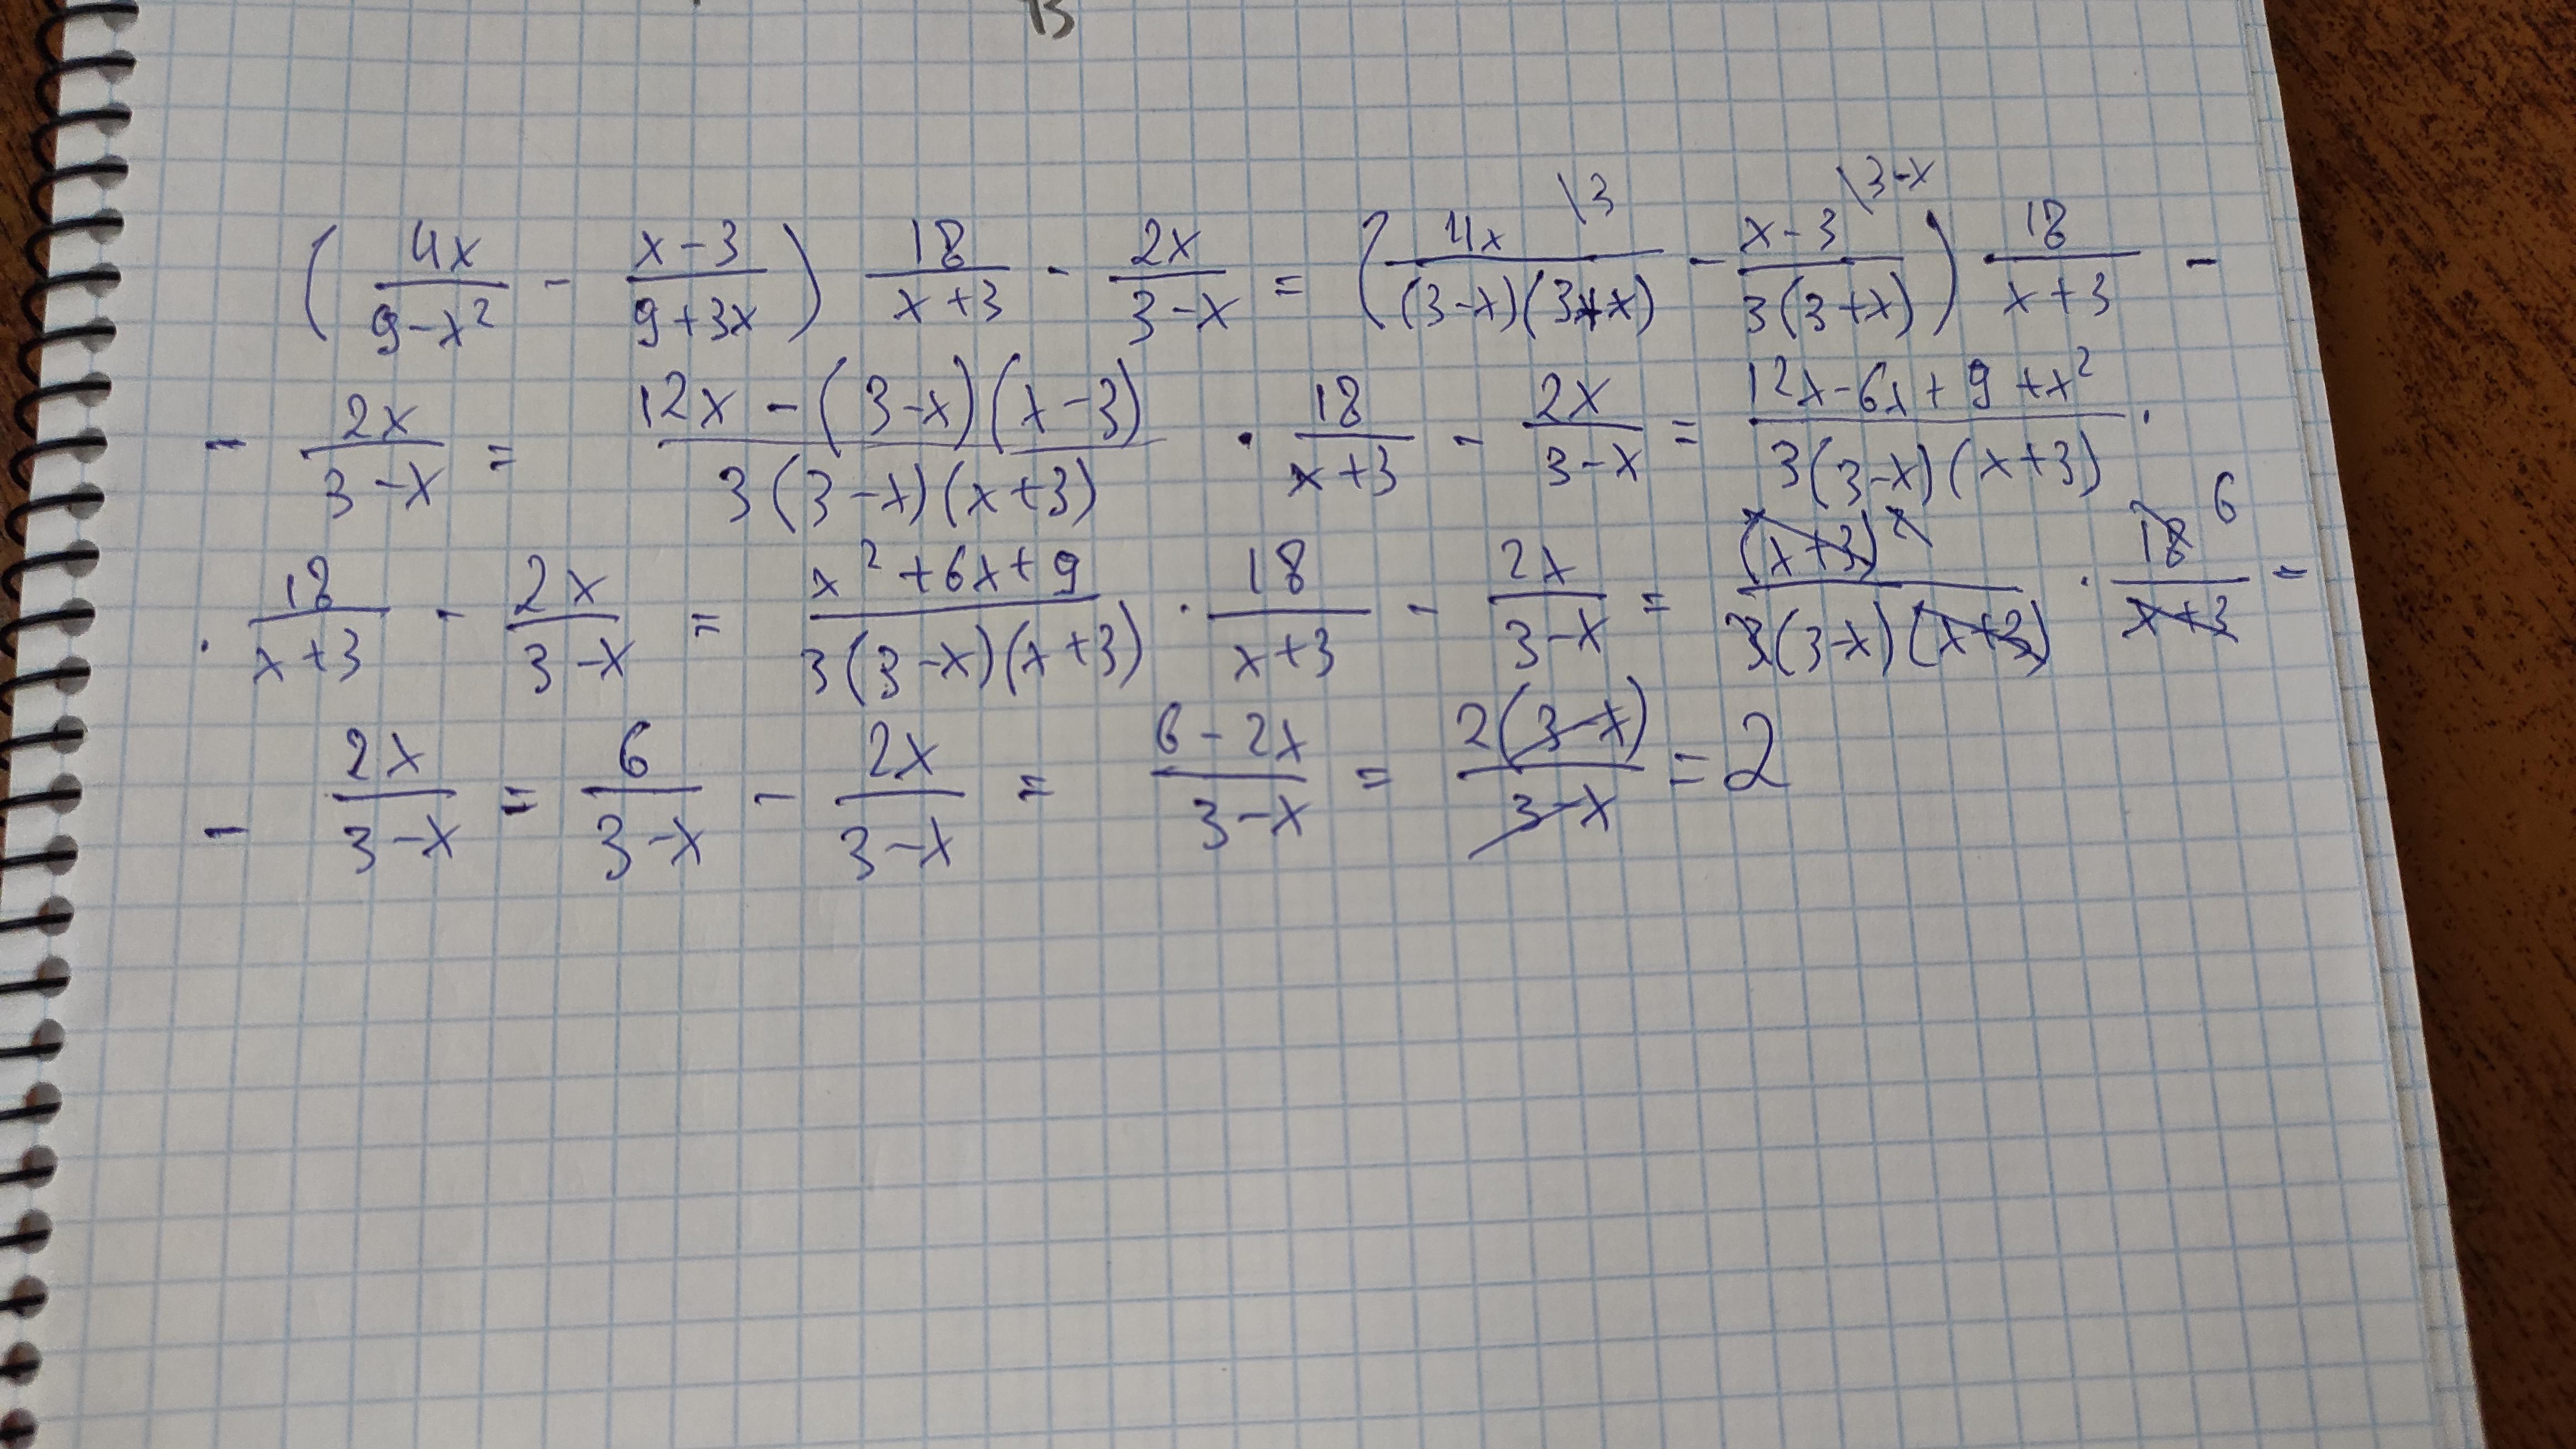 13
( 4x/(9-x²) - (x-3)/(9+3x) ) 18/(x+3) - 2x/(3-x) = ( 4x\3/((3-x)(3+x)) - (x-3)\3-x/(3(3+x)) ) 18/(x+3) -
- 2x/(3-x) = (12x-(3-x)(x-3))/(3(3-x)(x+3)) · 18/(x+3) - 2x/(3-x) = (12x-6x+9+x²)/(3(3-x)(x+3)) ·
· 18/(x+3) - 2x/(3-x) = (x²+6x+9)/(3(3-x)(x+3)) · 18/(x+3) - 2x/(3-x) = (x+3)²/(3(3-x)(x+3)) · 18 6/(x+3) =
- 2x/(3-x) = 6/(3-x) - 2x/(3-x) = (6-2x)/(3-x) = 2(3-x)/(3-x) = 2